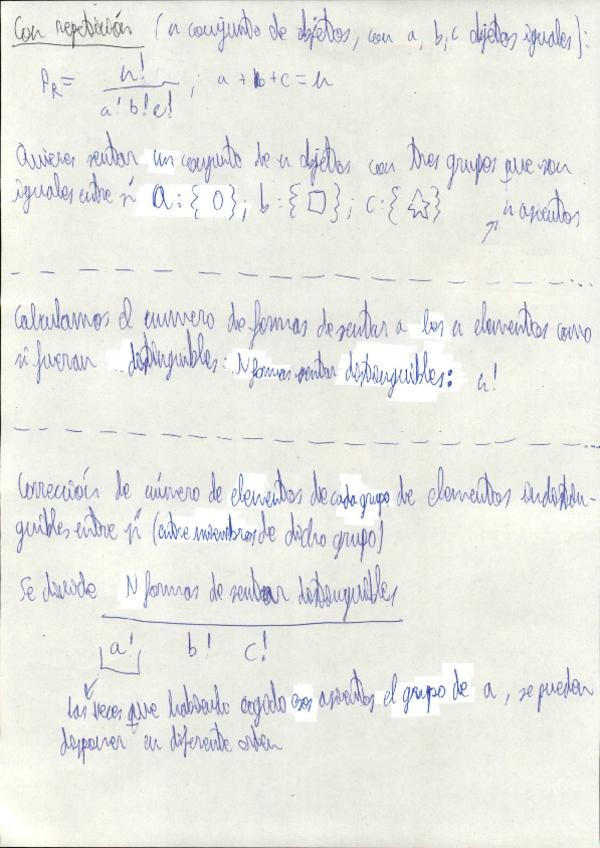 Con repetición (n conjunto de objetos, con a, b, c objetos iguales):
P_R = n! / a! b! c! ; a + b + c = n
Quieres sentar un conjunto de n objetos con tres grupos que son
iguales entre sí a: { O }; b: { □ }; c: { ☆ } n asientos
Calculamos el número de formas de sentar a los n elementos como
si fueran distinguibles: N formas sentar distinguibles: n!
Corrección de número de elementos de cada grupo de elementos indistin-
guibles entre sí (entre miembros de dicho grupo)
Se divide N formas de sentar distinguibles
a! b! c!
Las veces que habiendo cogido esos asientos el grupo de a, se pueden
disponer en diferente orden